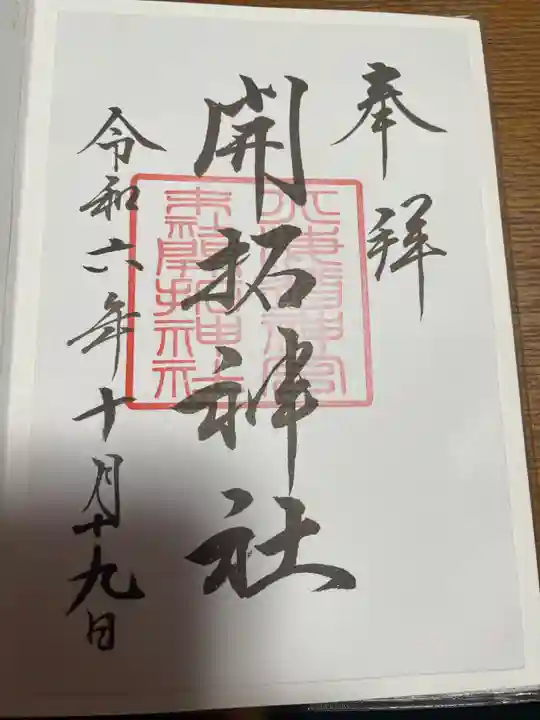 奉拝
開拓神社
令和六年十月十九日
末社開拓神社